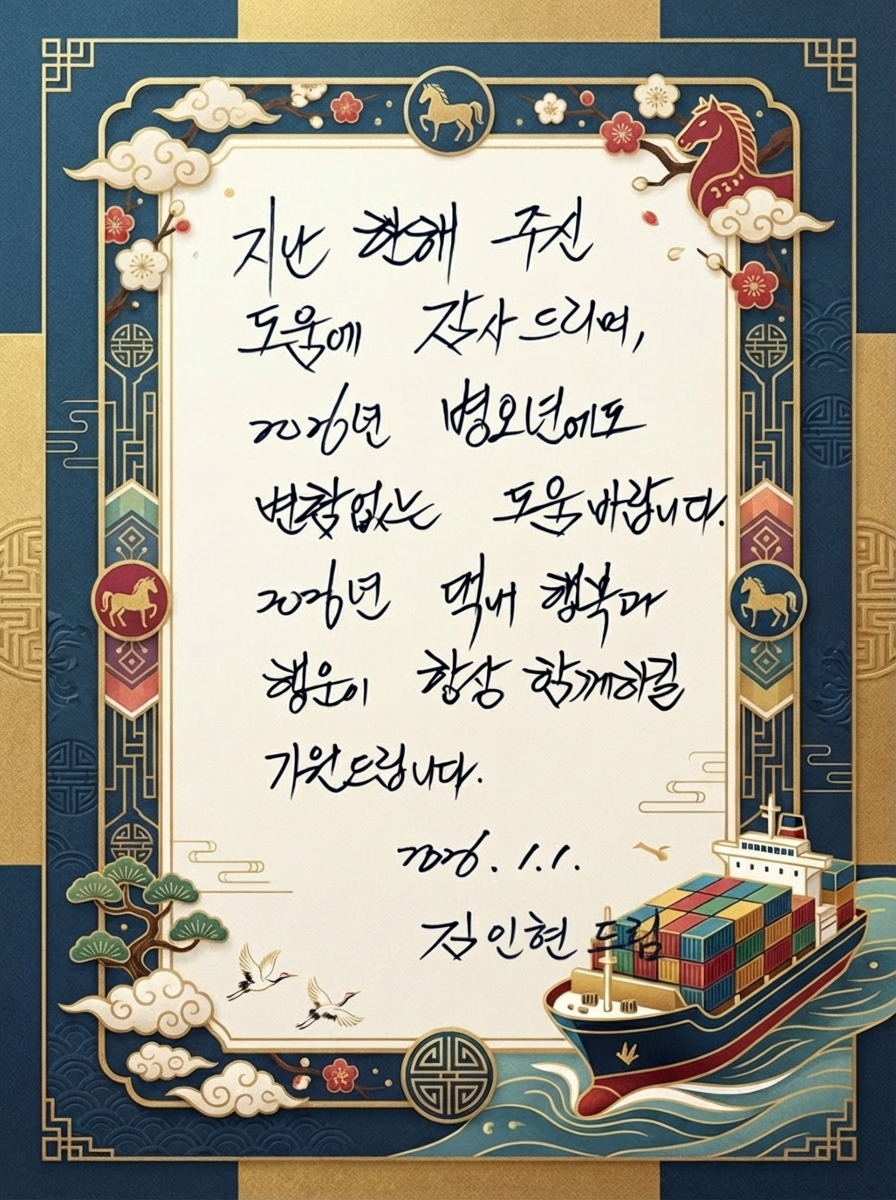 지난 한해 주신
도움에 감사드리며,
2026년 병오년에도
변함없는 도움 바랍니다.
2026년 댁내 행복과
행운이 항상 함께하길
기원드립니다.
2026. 1. 1.
김인현 드림